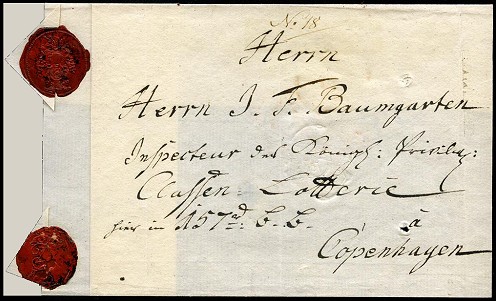 No. 18
Herrn
Herrn J. F. Baumgarten
Inspecteur des Königl: Privileg:
Classen-Lotterie
hier in 157 rd. b. b. à
Copenhagen